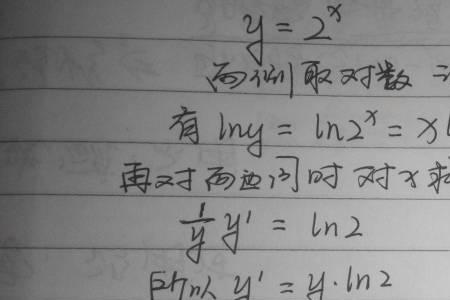 y = 2^x
两侧取对数
有 lny = ln2^x = x
再对两边同时对x求
1/y y' = ln2
所以 y' = y·ln2